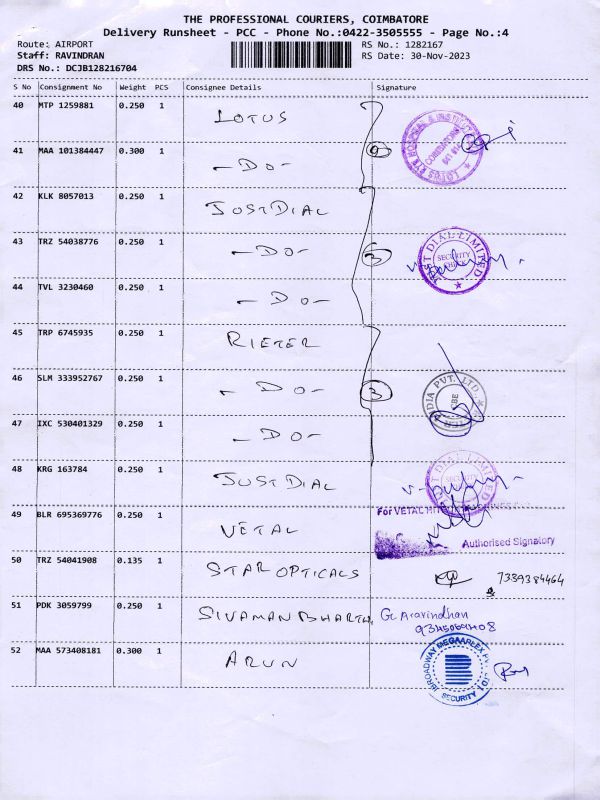 THE PROFESSIONAL COURIERS, COIMBATORE
Delivery Runsheet - PCC - Phone No.:0422-3505555 - Page No.:4
Route: AIRPORT
RS No.: 1282167
Staff: RAVINDRAN
RS Date: 30-Nov-2023
DRS No.: DCJB128216704
S No Consignment No Weight PCS Consignee Details Signature
40 MTP 1259881 0.250 1 LOTUS
41 MAA 101384447 0.300 1 -DO-
42 KLK 8057013 0.250 1 JUSTDIAL
43 TRZ 54038776 0.250 1 -DO- 3
JUST DIAL LIMITED SECURITY
44 TVL 3230460 0.250 1 -DO-
45 TRP 6745935 0.250 1 RIETER
46 SLM 333952767 0.250 1 -DO- 3
INDIA PVT. LTD. CBE
47 IXC 530401329 0.250 1 -DO-
48 KRG 163784 0.250 1 JUSTDIAL
JUST DIAL LIMITED
49 BLR 695369776 0.250 1 VETAL
For VETAL
Authorised Signatory
50 TRZ 54041908 0.135 1 STAR OPTICALS 7389384464
51 PDK 3059799 0.250 1 Aravindhan
52 MAA 573408181 0.300 1 ARUN
BROADWAY MEGAARPLEX SECURITY